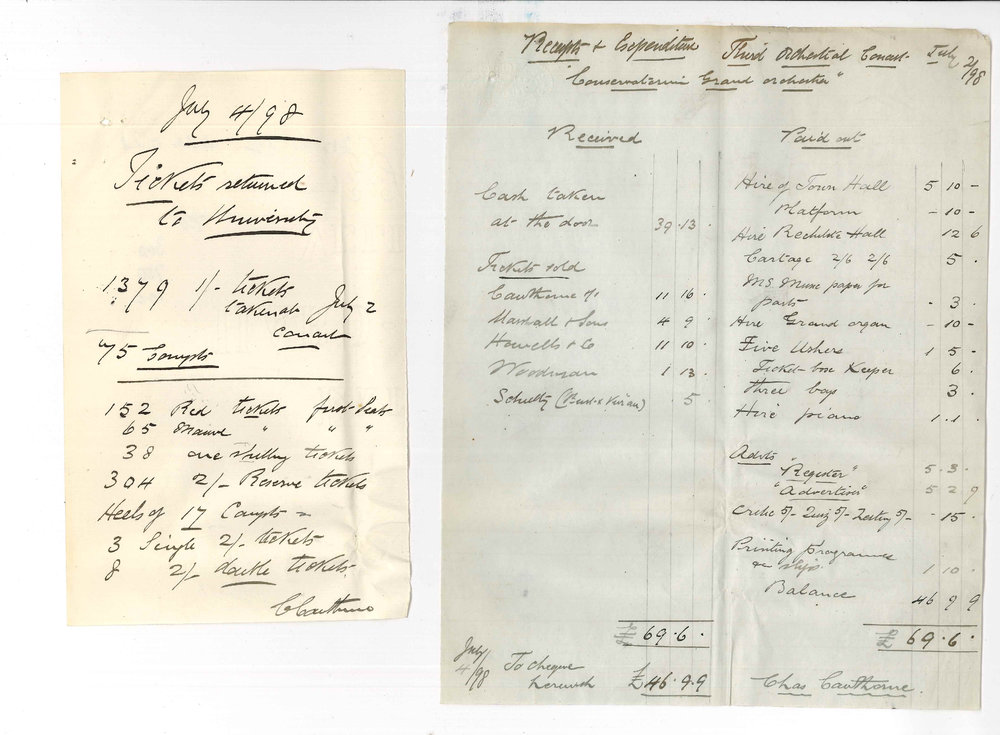 July 4/98
Tickets returned
to University
1379 1/- tickets
taken at July 2
concert
75 Compts
152 Red tickets first Seats
65 Mauve " " "
38 one shilling tickets
304 2/- Reserve tickets
Heels of 17 Compts
3 Single 2/- tickets
8 2/- double tickets
C Cawthorne
Receipts & Expenditure Third Orchestral Concert July 2/98
"Conservatorium Grand Orchestra"
Received
Cash taken
at the door 39 · 13 ·
Tickets sold
Cawthorne 11 16 ·
Marshall & Sons 4 9 ·
Howells & Co 11 10 ·
Woodman 1 13 ·
· 5 ·
£ 69 · 6 ·
July 4/98 To cheque
herewith £46 · 9 · 9
Paid out
Hire of Town Hall 5 10 -
Platform - 10 -
Hire Rechabite Hall 12 6
Cartage 2/6 2/6 5 ·
MS Music paper for
parts · 3 ·
Hire Grand organ - 10 -
Five Ushers 1 5 -
Ticket-box Keeper 6 ·
three boys 3 ·
Hire piano 1 · 1 ·
Advts
"Register" 5 · 3 ·
"Advertiser" 5 2 9
Critic 5/- Quiz 5/- 5/- · 15 ·
Printing programme
slips 1 10 ·
Balance 46 9 9
£ 69 · 6 ·
Chas Cawthorne.